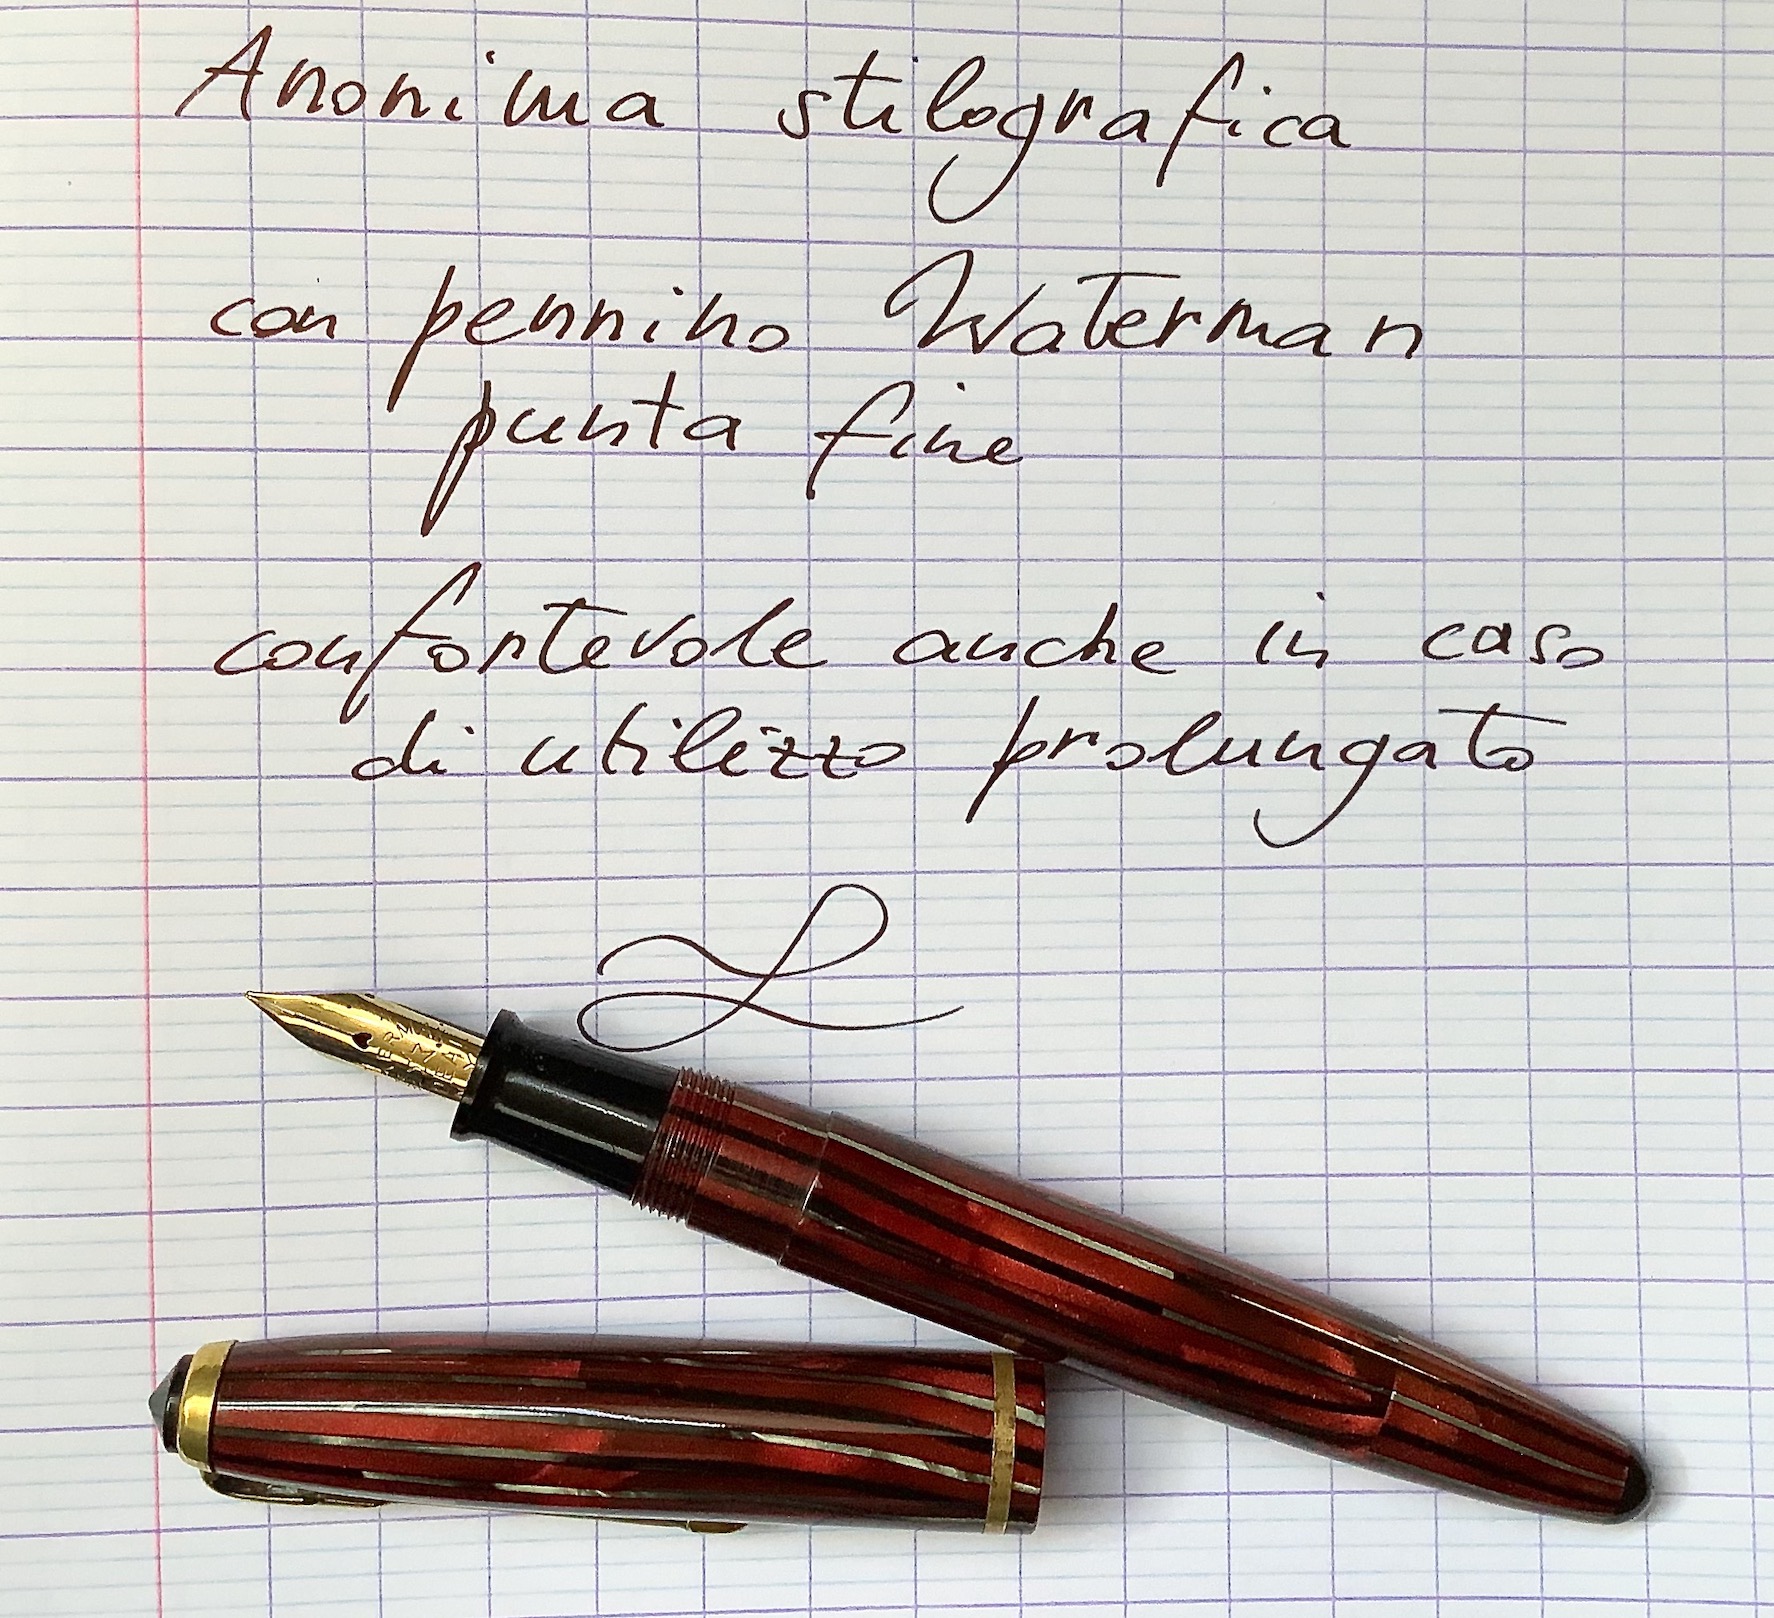 Anonima stilografica
con pennino Waterman
punta fine
confortevole anche in caso
di utilizzo prolungato